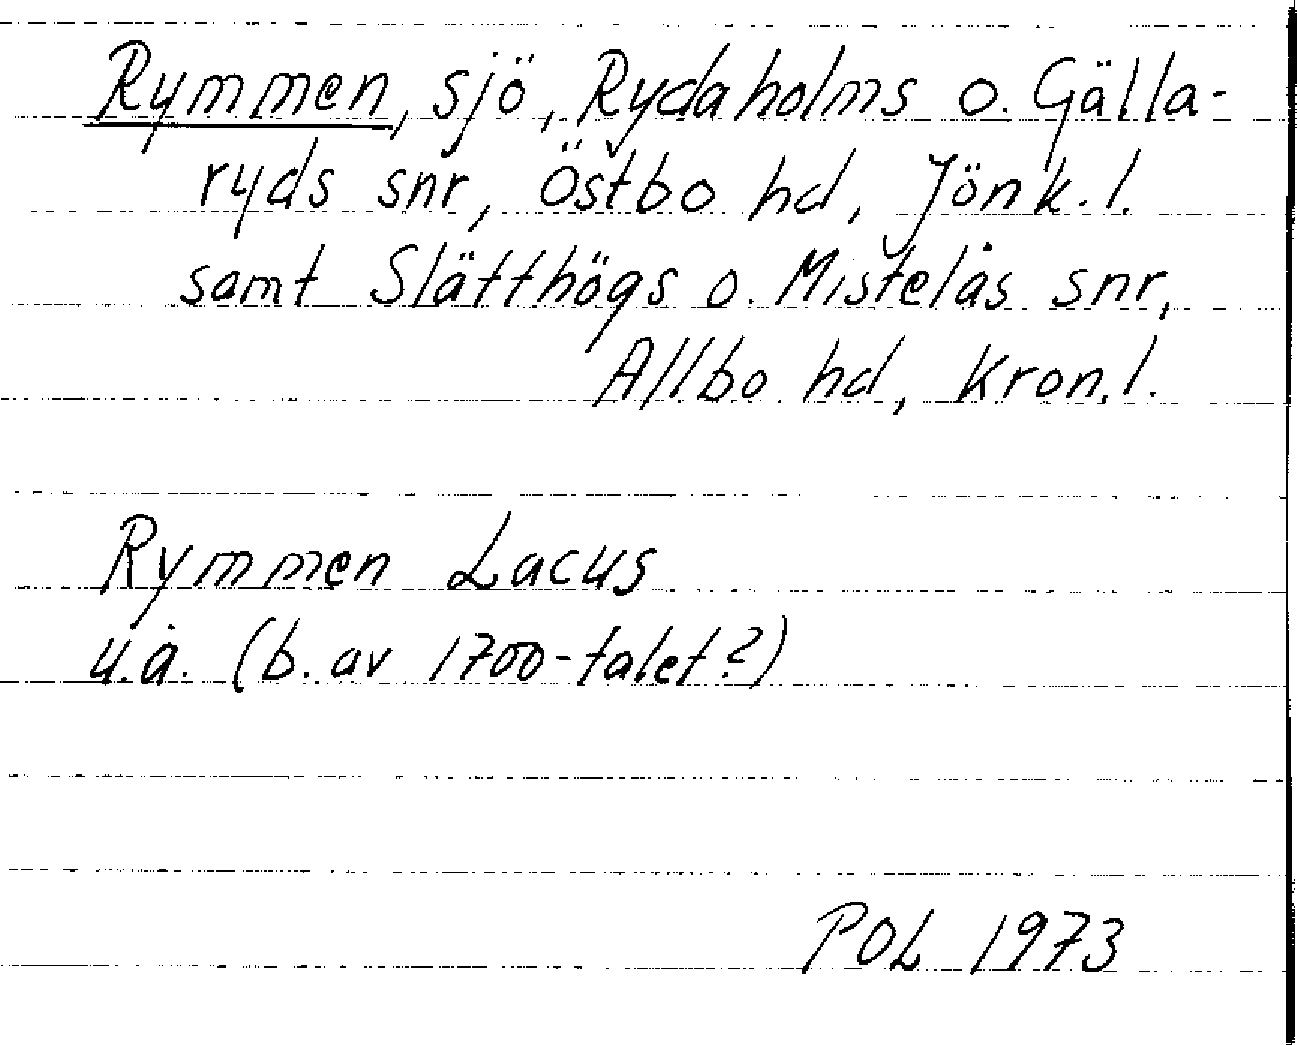 Rymmen, sjö, Rydaholms o. Gälla-
ryds snr, Östbo hd, Jönk.l.
samt Slätthögs o. Mistelås snr,
Allbo hd, Kron.l.
Rymmen Lacus
u.å. (b. av 1700-talet?)
POL 1973